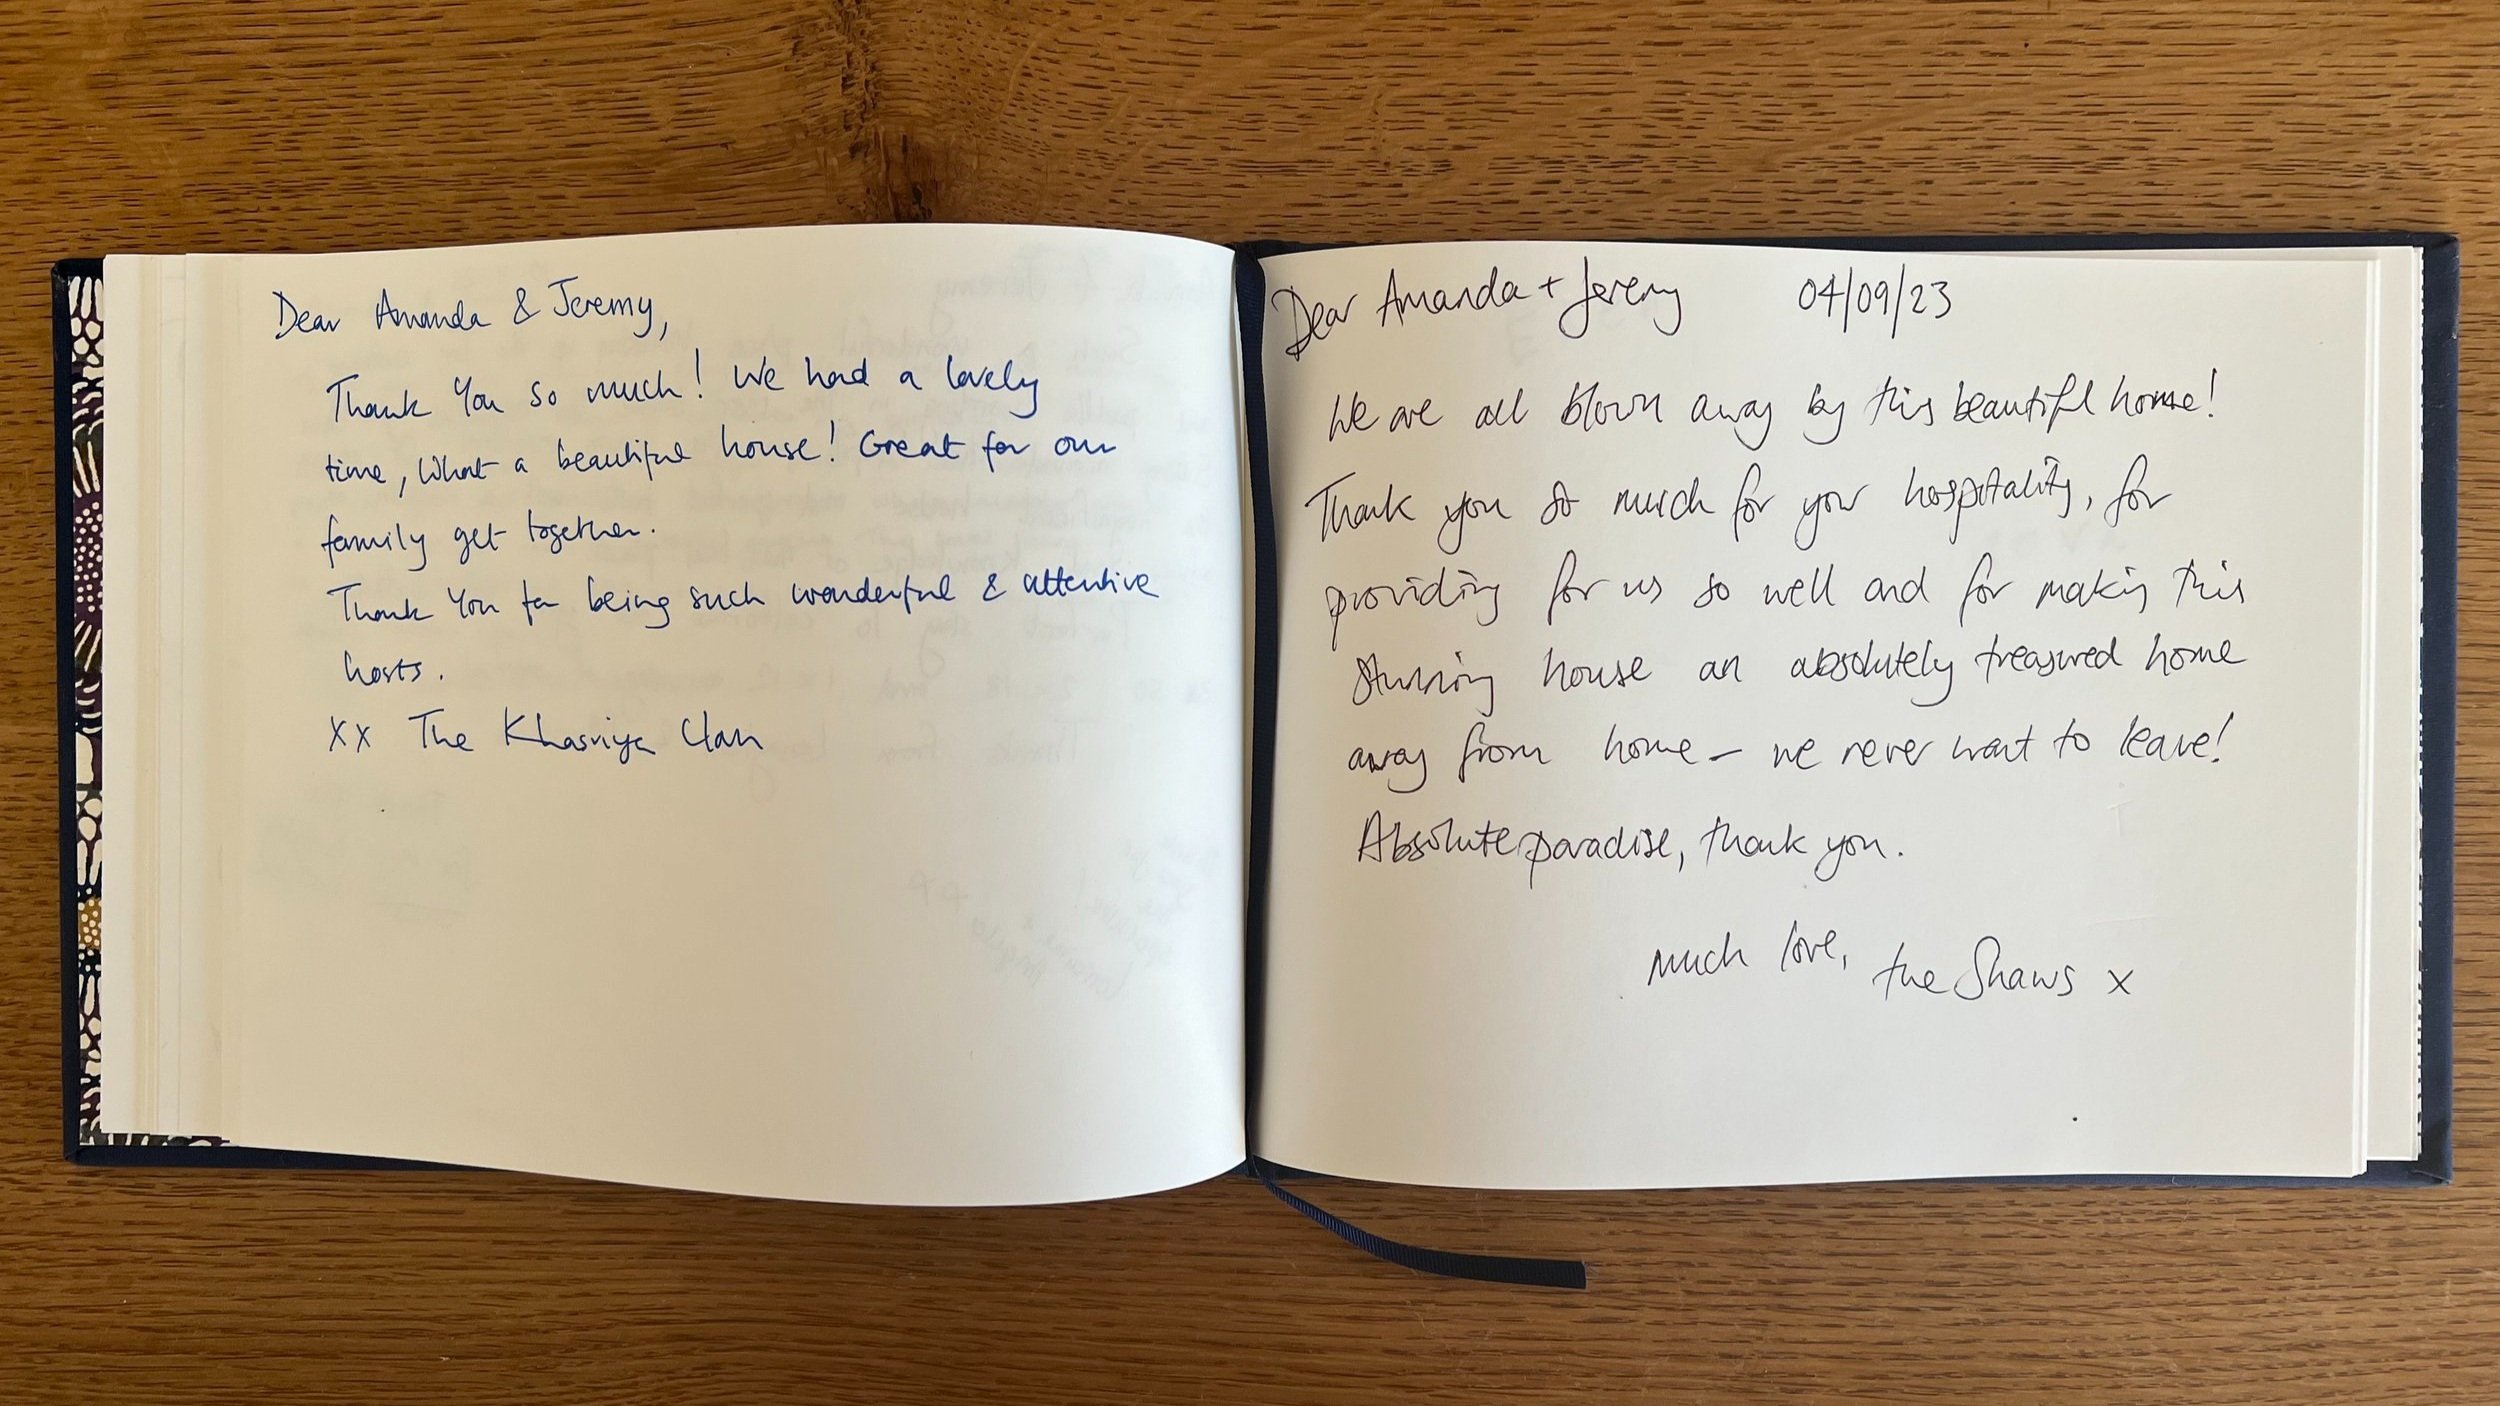 Dear Amanda & Jeremy,
Thank You so much! We had a lovely
time, What a beautiful house! Great for our
family get together.
Thank You for being such wonderful & attentive
hosts.
xx The Khasriya Clan
Dear Amanda + Jeremy 04/09/23
We are all blown away by this beautiful home!
Thank you so much for your hospitality, for
providing for us so well and for making this
stunning house an absolutely treasured home
away from home - we never want to leave!
Absolute paradise, thank you.
Much love, the Shaws x